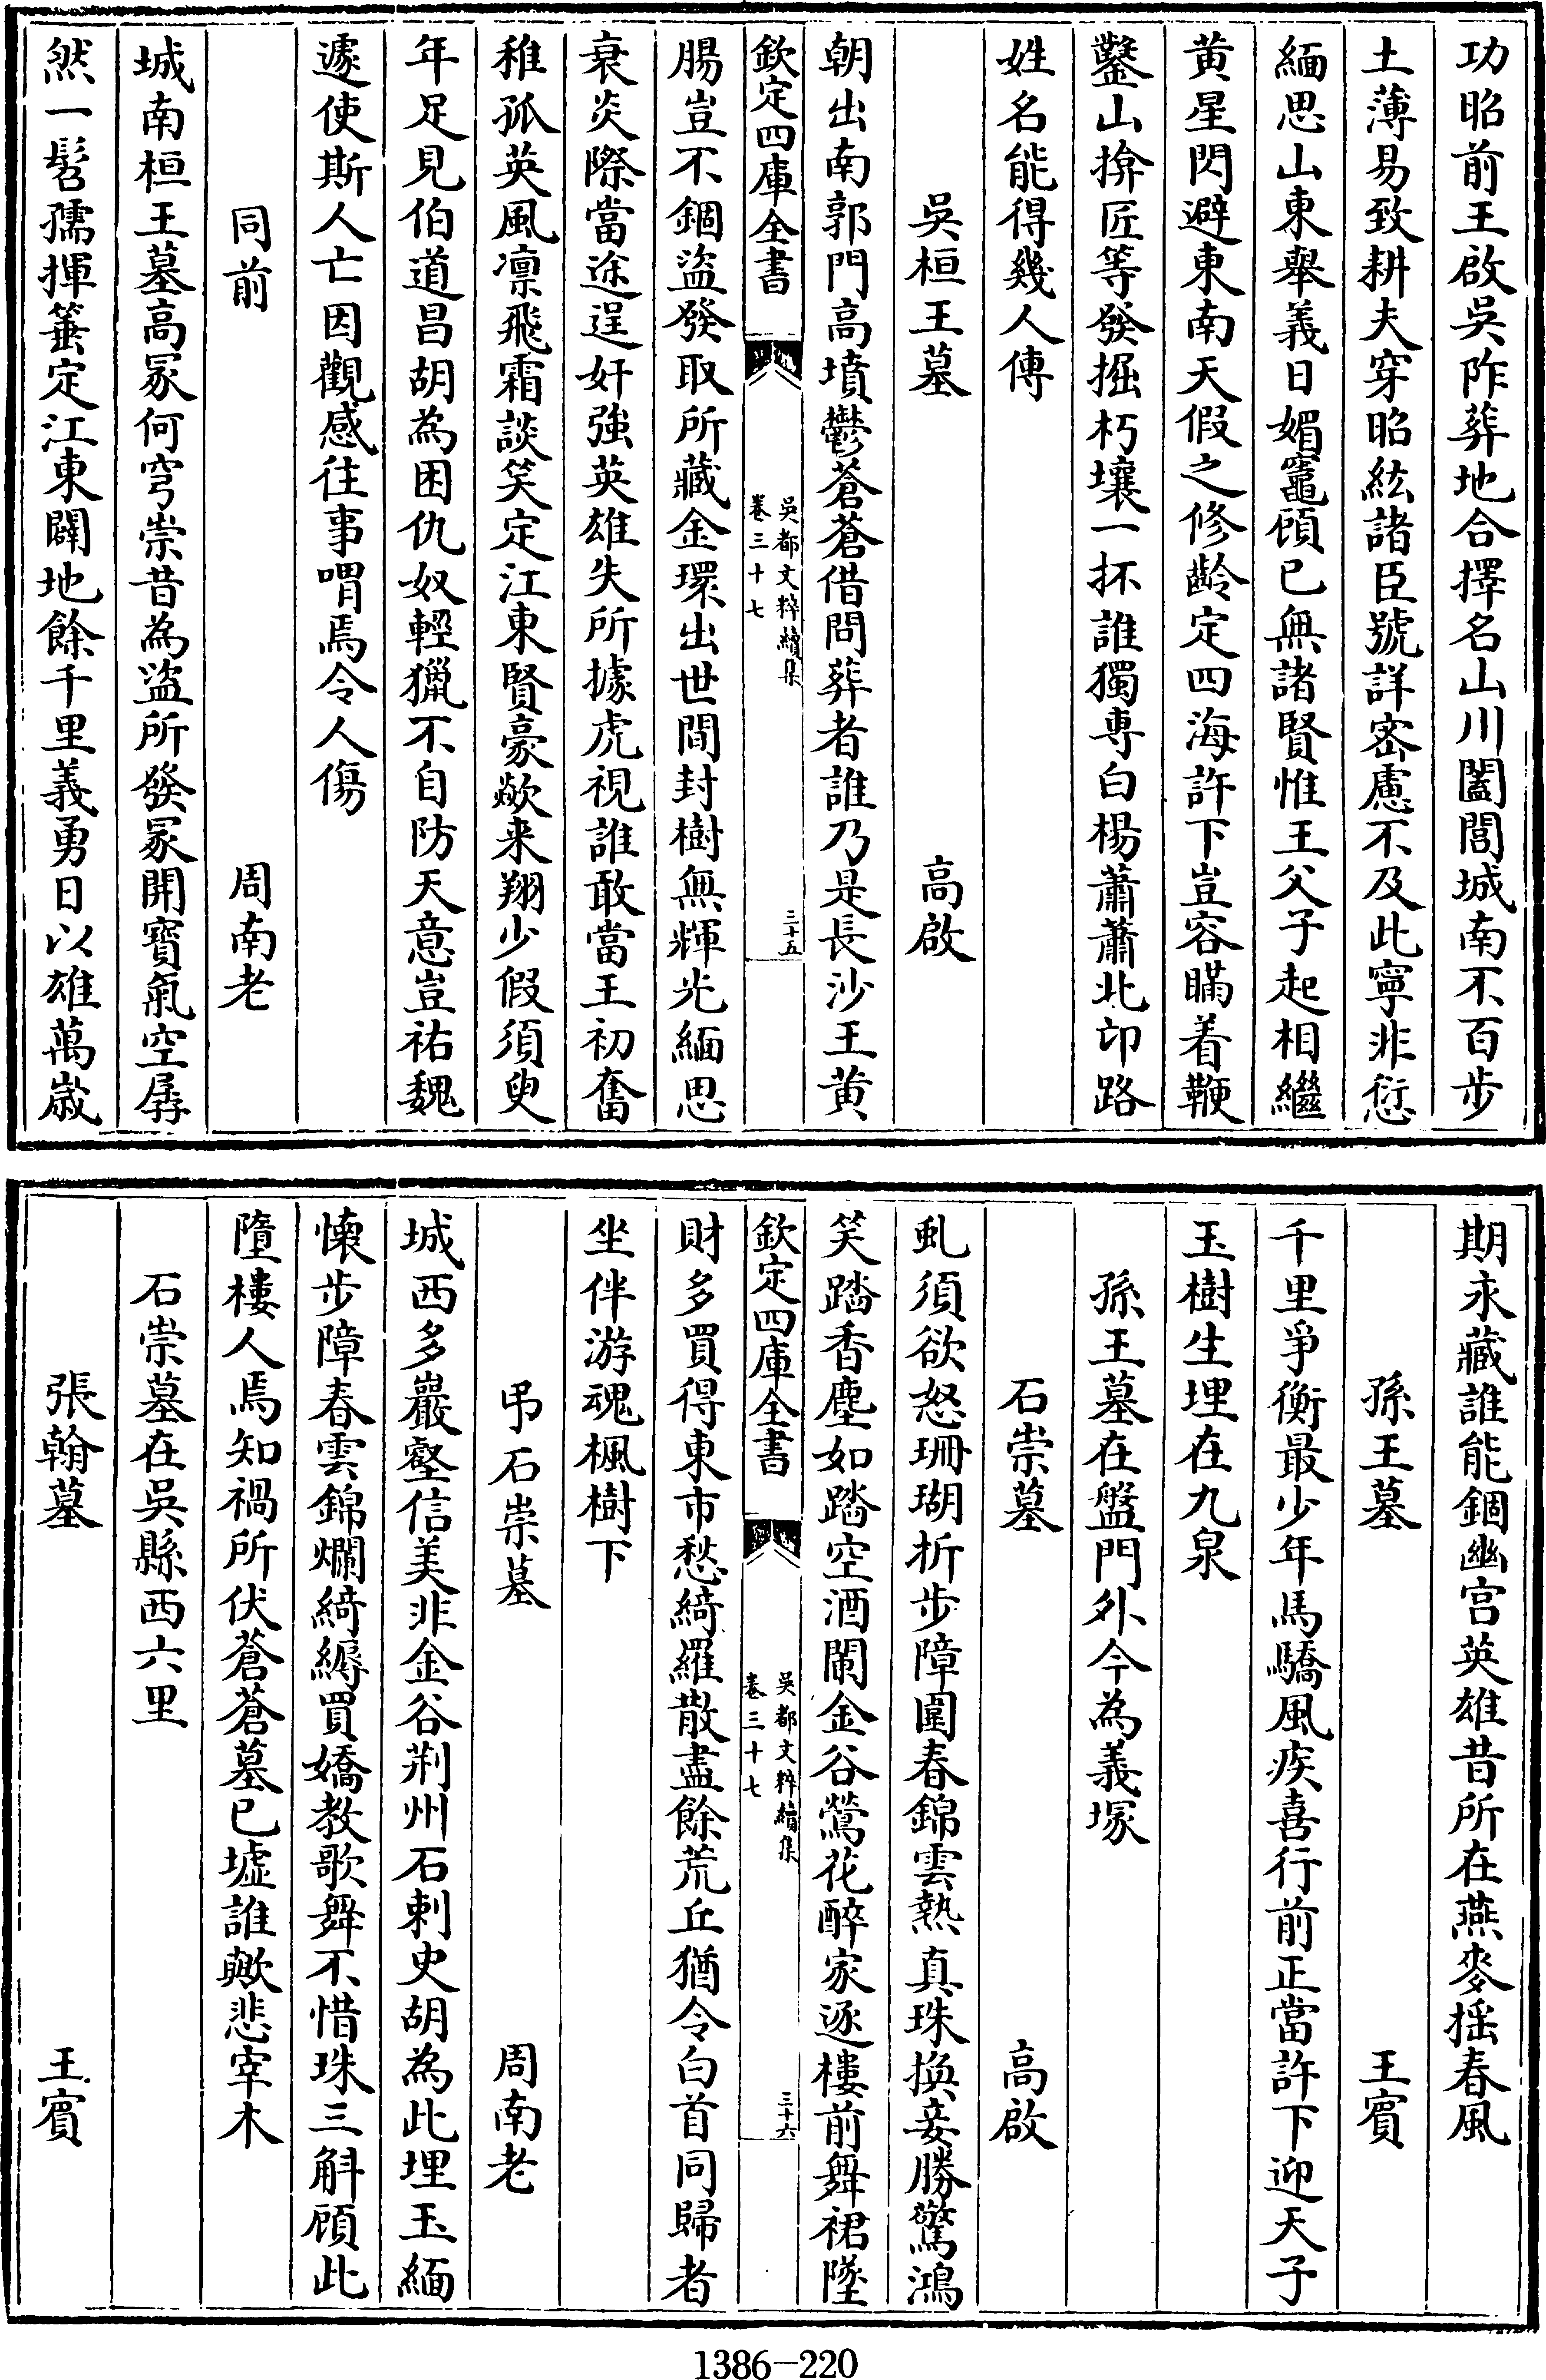 功昭前王啟吳阼葬地合擇名山川闔閭城南不百步
土薄易致耕夫穿昭紘諸臣號詳密慮不及此寧非愆
緬思山東舉義日媚竈顧已無諸賢惟王父子起相繼
黄星閃避東南天假之修齡定四海許下豈容瞞着鞭
鑿山揜匠等發掘朽壤一抔誰獨專白楊蕭蕭北邙路
姓名能得幾人傳
吳桓王墓　高啟
朝出南郭門高墳鬱蒼蒼借問葬者誰乃是長沙王黄
欽定四庫全書　吳都文粹續集　卷三十七　三十五
腸豈不錮盜發取所藏金環出世間封樹無輝光緬思
衰炎際當途逞奸強英雄失所據虎視誰敢當王初奮
稚孤英風凛飛霜談笑定江東賢豪歘来翔少假須臾
年足見伯道昌胡為困仇奴輕獵不自防天意豈祐魏
遽使斯人亡因觀感往事喟焉令人傷
同前　周南老
城南桓王墓高冢何穹崇昔為盜所發冢開寶氣空孱
然一髫孺揮箠定江東闢地餘千里義勇日以雄萬歲
期永藏誰能錮幽宫英雄昔所在燕麥揺春風
孫王墓　王賓
千里爭衡最少年馬驕風疾喜行前正當許下迎天子
玉樹生埋在九泉
孫王墓在盤門外今為義塚
石崇墓　高啟
虬須欲怒珊瑚折步障圍春錦雲熱真珠換妾勝驚鴻
笑踏香塵如踏空酒闌金谷鶯花醉家逐樓前舞裙墜
欽定四庫全書　吳都文粹續集　卷三十七　三十六
財多買得東市愁綺羅散盡餘荒丘猶令白首同歸者
坐伴游魂楓樹下
弔石崇墓　周南老
城西多巖壑信美非金谷荆州石刺史胡為此埋玉緬
懐步障春雲錦爛綺縟買嬌教歌舞不惜珠三斛顧此
墮樓人焉知禍所伏蒼蒼墓已墟誰歟悲宰木
石崇墓在吳縣西六里
張翰墓　王賓
1386-220